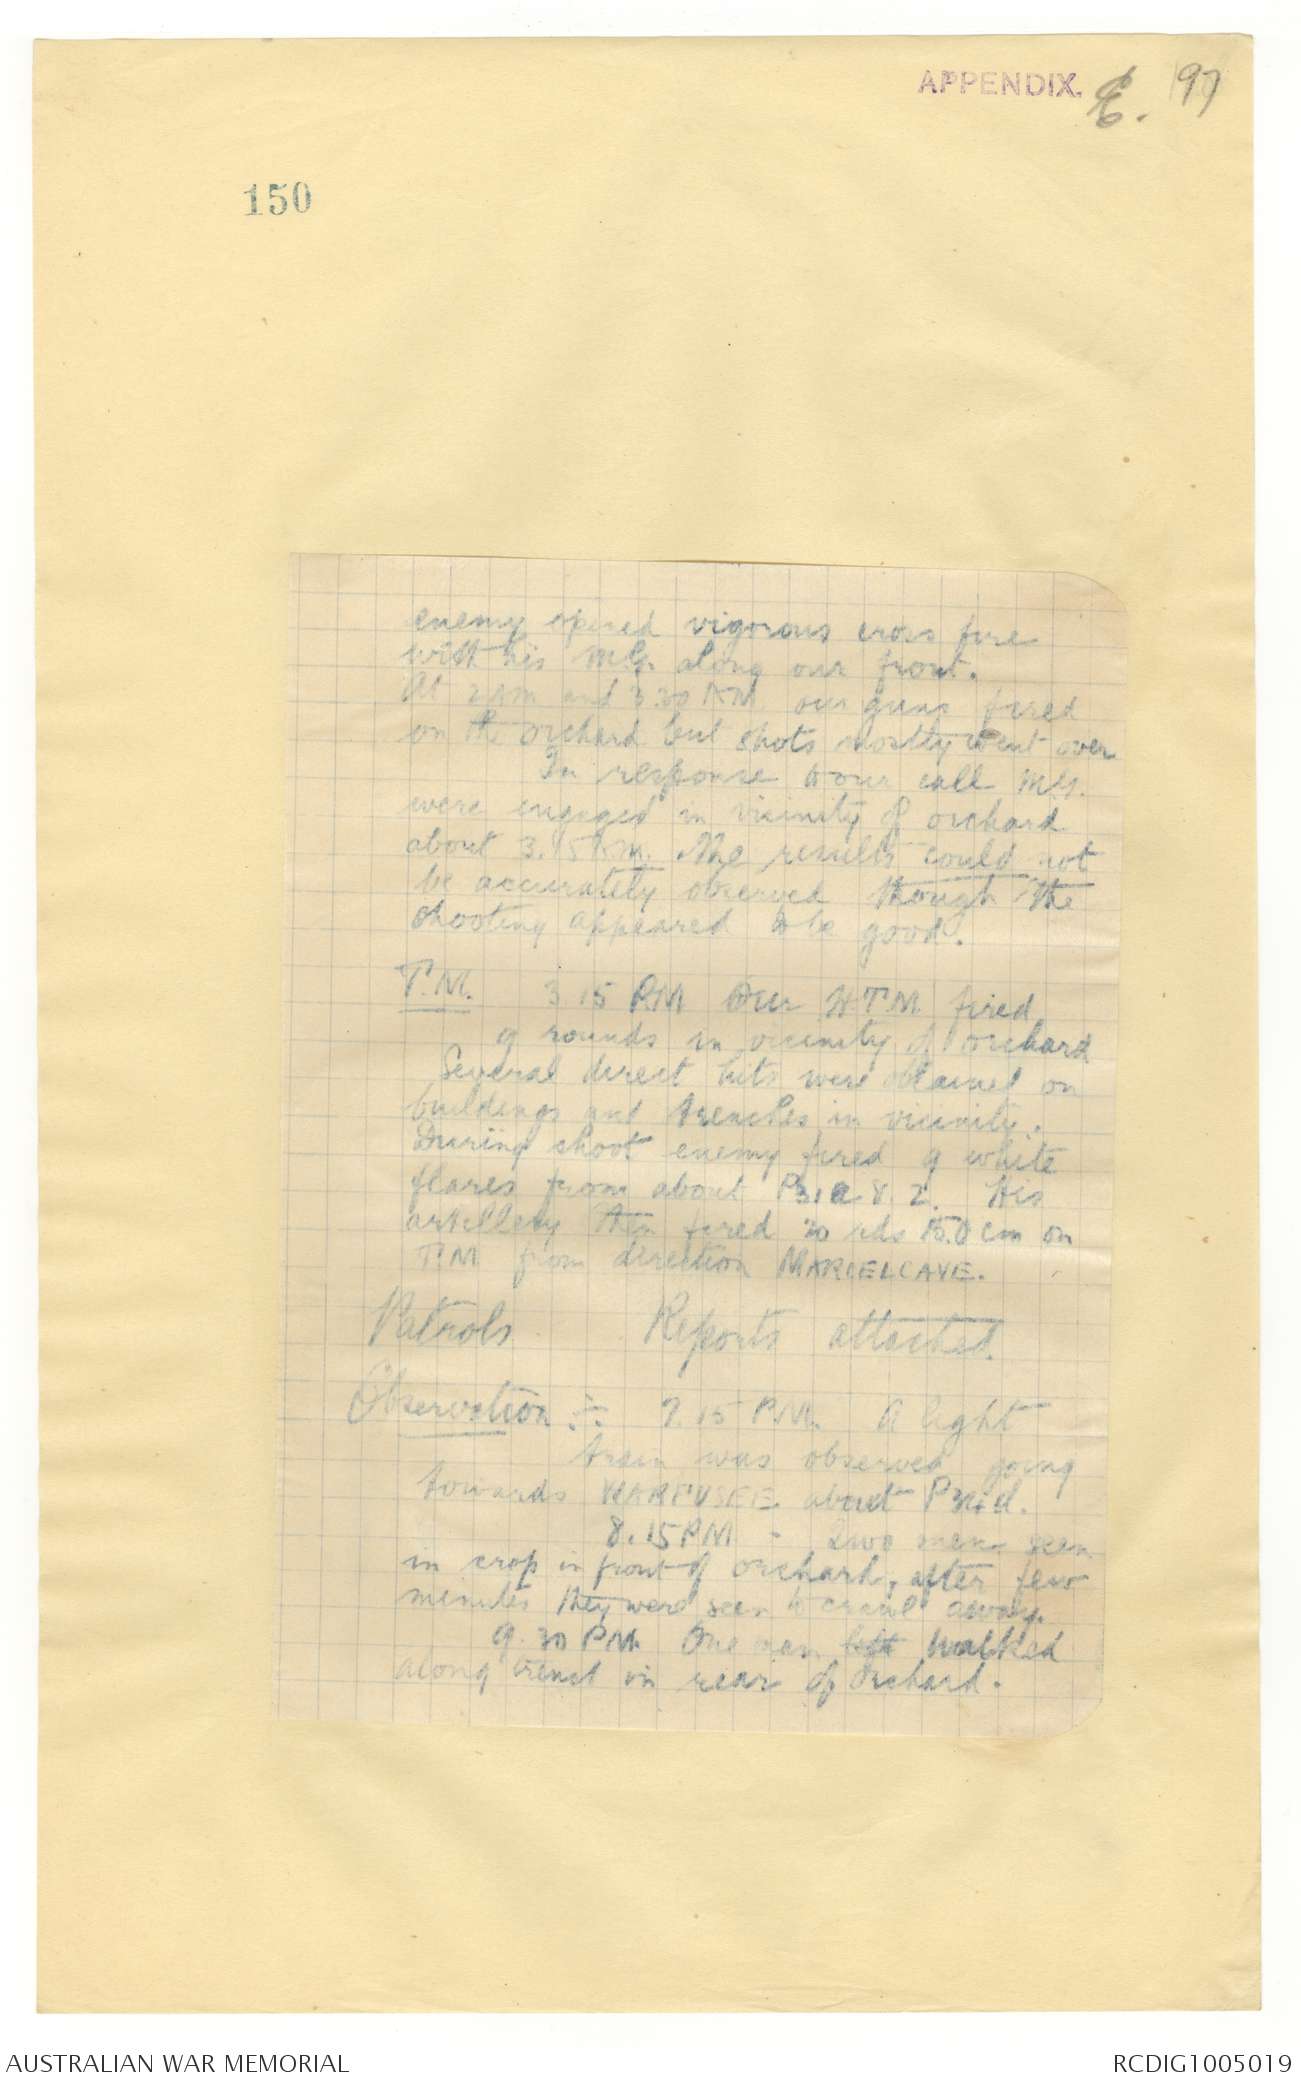 APPENDIX. E. 97
150
enemy opened vigorous cross fire
with his M.G. along our front.
At 2 AM and 3.30 AM our guns fired
on the orchard but shots mostly went over
In response to our call M.G.
were engaged in vicinity of orchard
about 3.15 AM. The results could not
be accurately observed though the
shooting appeared to be good.
T.M. 3 15 PM Our H.T.M fired
9 rounds in vicinity of orchard
Several direct hits were obtained on
buildings and trenches in vicinity.
During shoot enemy fired 9 white
flares from about P31a 8.2. His
artillery then fired 20 rds 15.0 cm on
T.M from direction MARCELCAVE.
Patrols Reports attached.
Observation :- 7.15 P.M. A light
train was observed going
towards WARFUSEE about P34d.
8.15 PM - Two men seen
in crop in front of orchard, after few
minutes they were seen to crawl away.
9.30 PM. One man left walked
along trench in rear of Orchard.
AUSTRALIAN WAR MEMORIAL RCDIG1005019